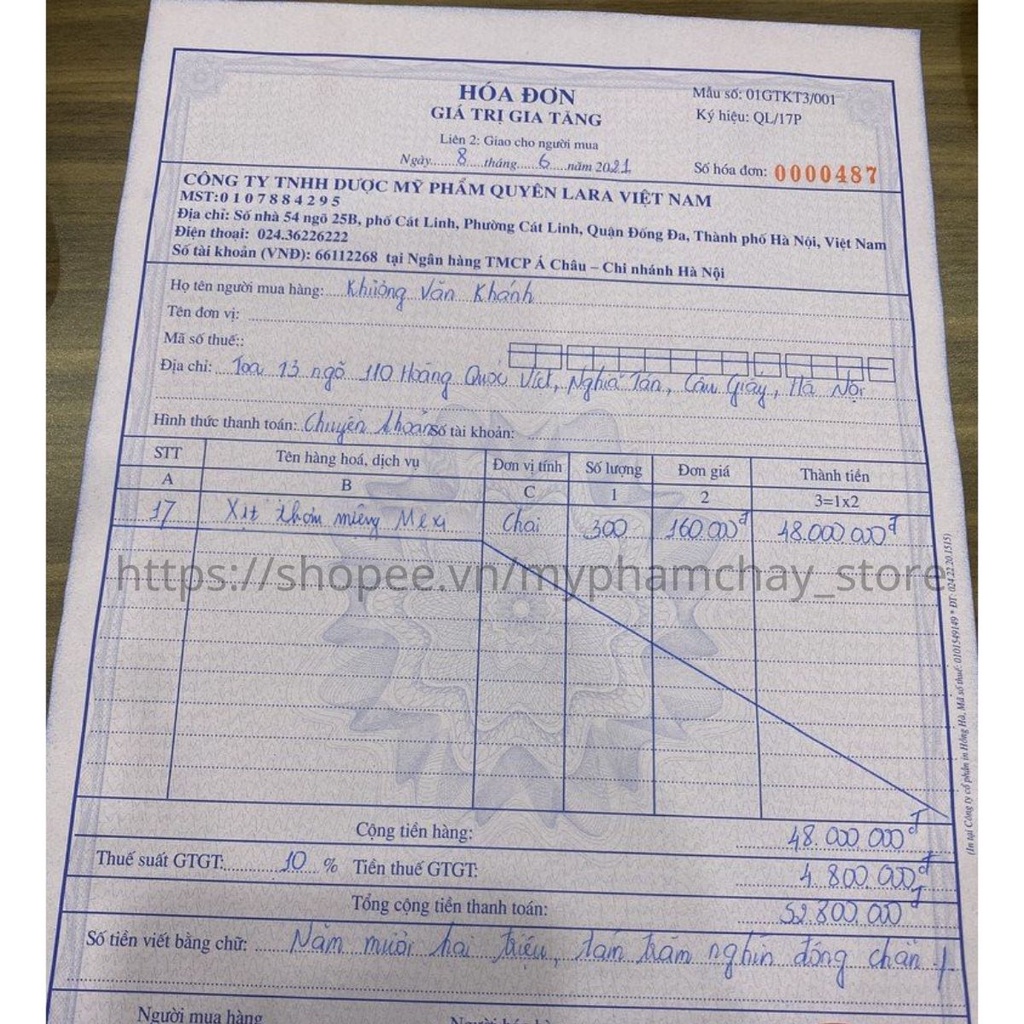 HÓA ĐƠN
GIÁ TRỊ GIA TĂNG
Liên 2: Giao cho người mua
Ngày 8 tháng 6 năm 2021
Mẫu số: 01GTKT3/001
Ký hiệu: QL/17P
Số hóa đơn: 0000487
CÔNG TY TNHH DƯỢC MỸ PHẨM QUYÊN LARA VIỆT NAM
MST:0107884295
Địa chỉ: Số nhà 54 ngõ 25B, phố Cát Linh, Phường Cát Linh, Quận Đống Đa, Thành phố Hà Nội, Việt Nam
Điện thoại: 024.36226222
Số tài khoản (VNĐ): 66112268 tại Ngân hàng TMCP Á Châu – Chi nhánh Hà Nội
Họ tên người mua hàng: Khương Văn Khánh
Tên đơn vị:
Mã số thuế::
Địa chỉ: Toà 13 ngõ 110 Hoàng Quốc Việt, Nghĩa Tân, Cầu Giấy, Hà Nội
Hình thức thanh toán: Chuyển khoản Số tài khoản:
STT Tên hàng hoá, dịch vụ Đơn vị tính Số lượng Đơn giá Thành tiền
A B C 1 2 3=1x2
17 Xịt thơm miệng Mexi Chai 300 160.000đ 48.000 000đ
https://shopee.vn/myphamchay_store
Cộng tiền hàng: 48.000.000đ
Thuế suất GTGT: 10 % Tiền thuế GTGT: 4.800.000đ
Tổng cộng tiền thanh toán: 52.800.000đ
Số tiền viết bằng chữ: Năm mươi hai triệu, tám trăm nghìn đồng chẵn /.
Người mua hàng
(In tại Công ty cổ phần in Hồng Hà, Mã số thuế: 0101549149 * ĐT: 024.22.20.1515)